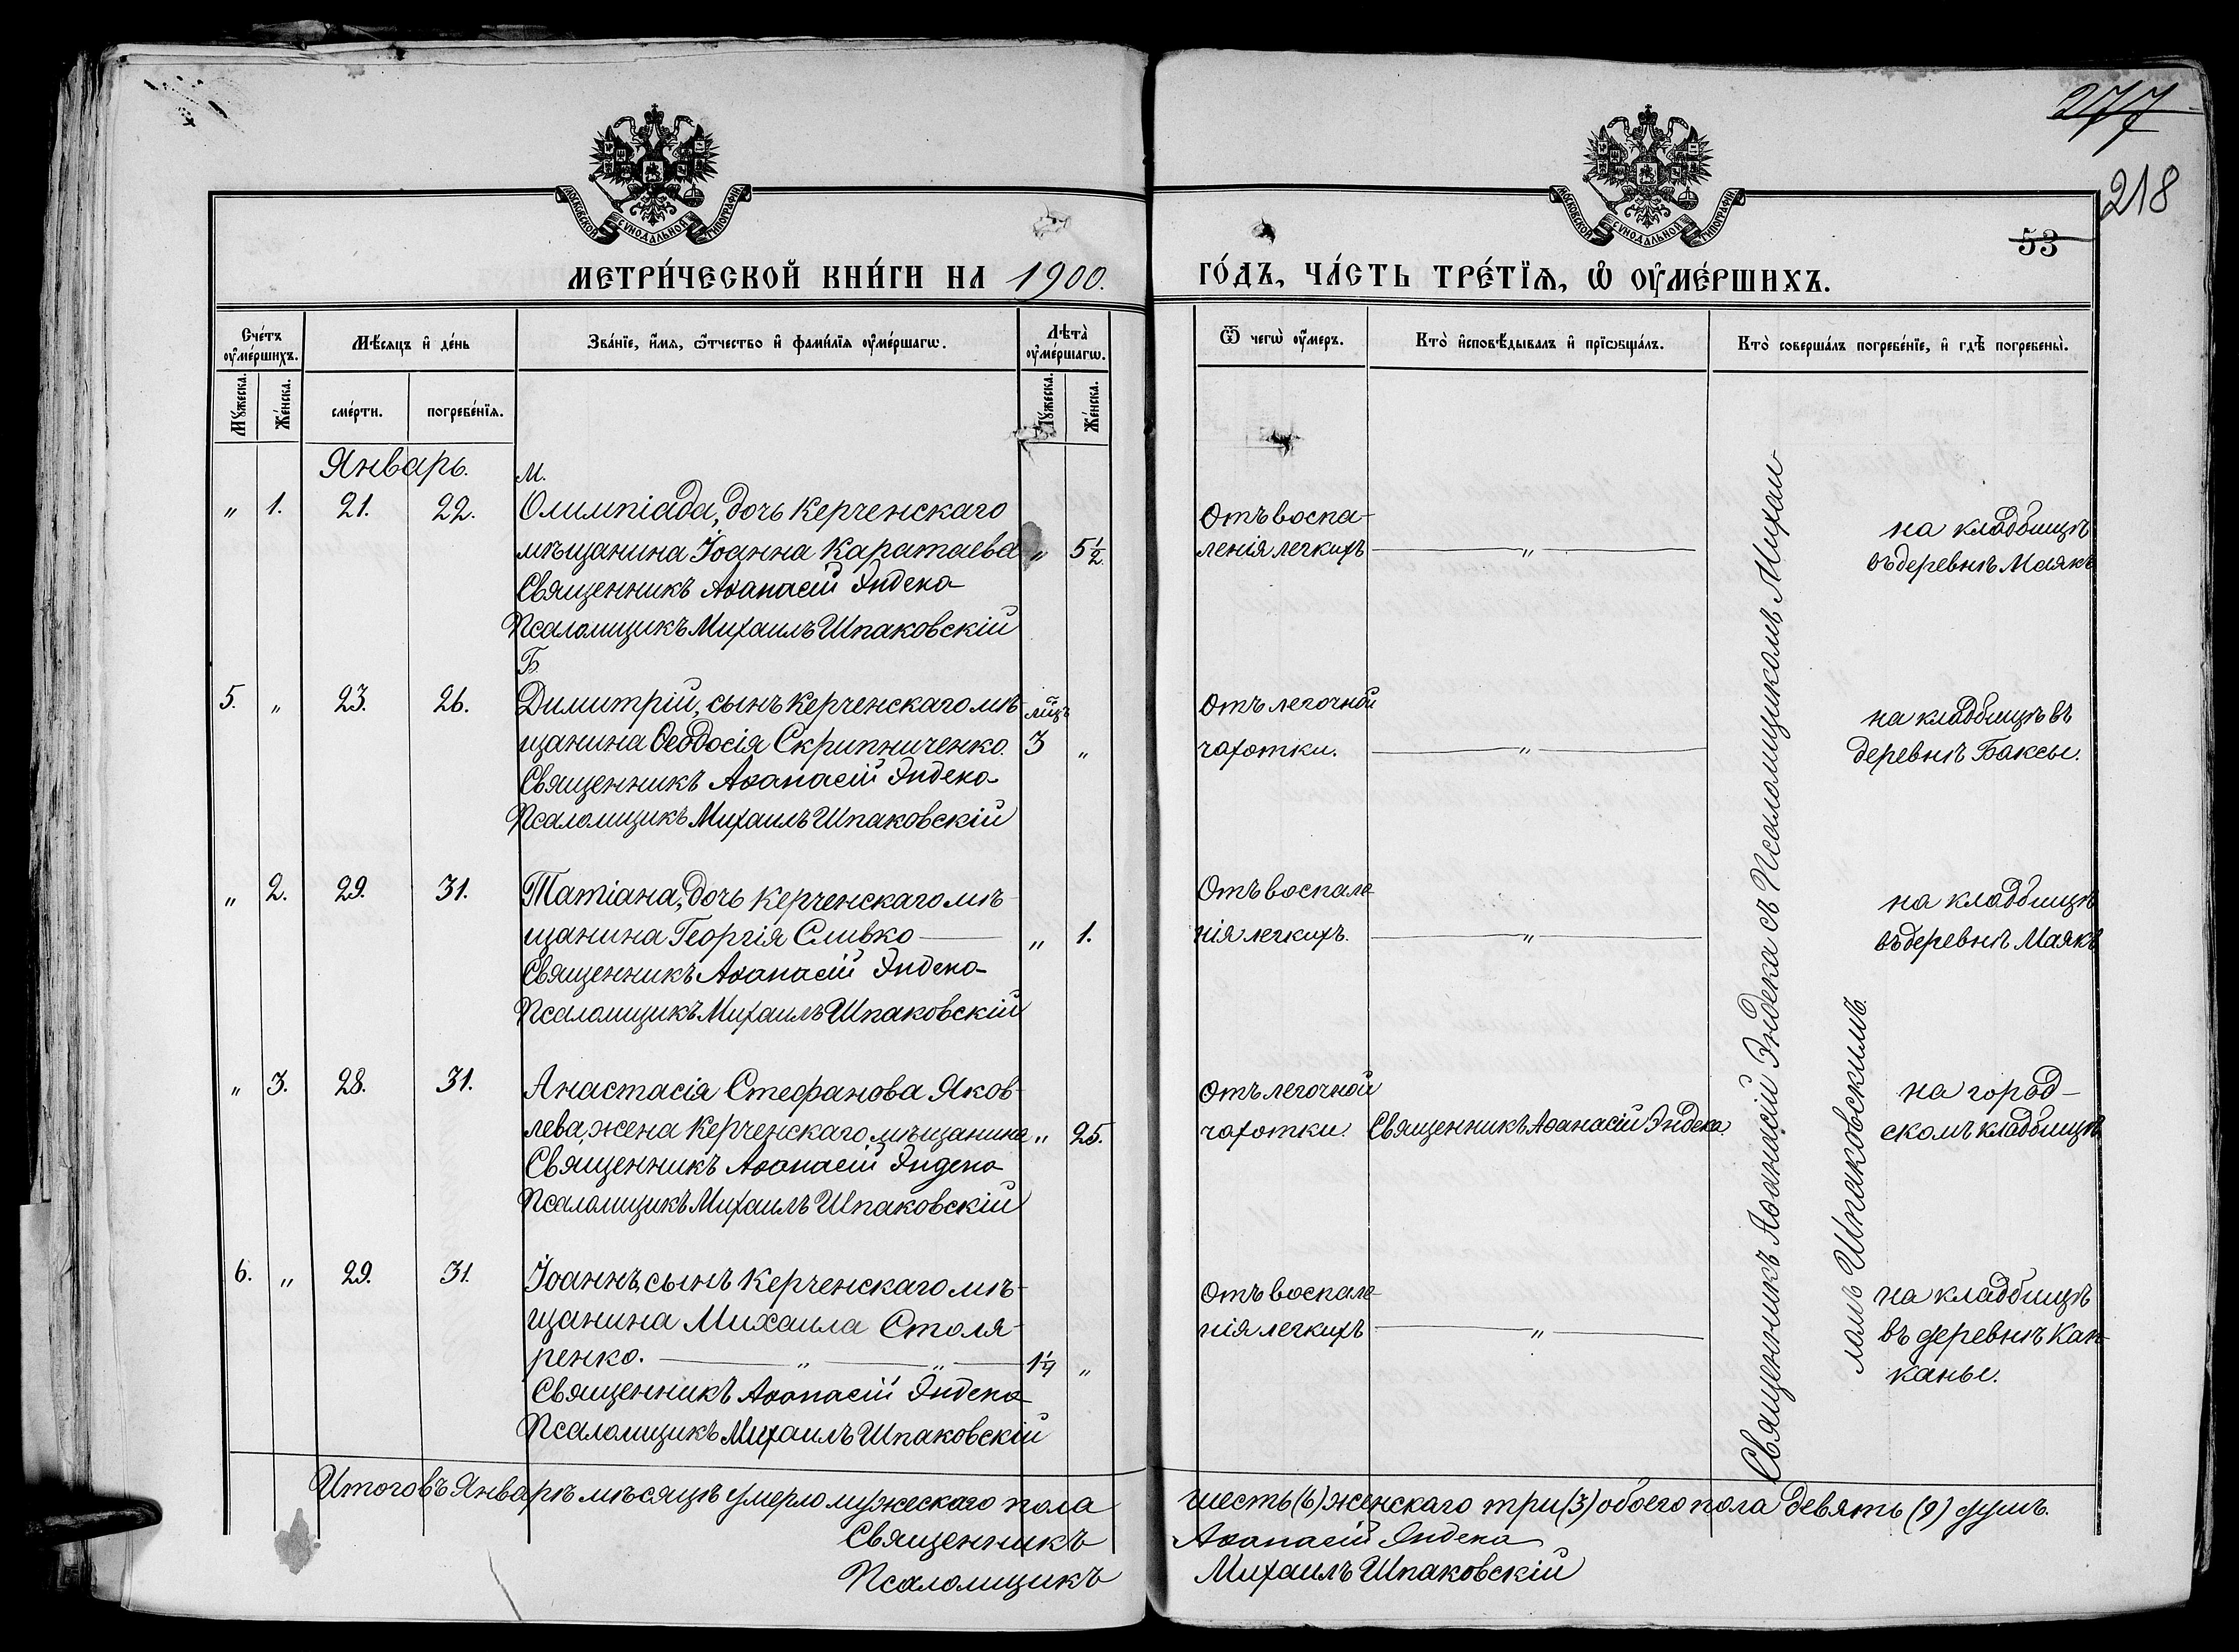 277
218
53
МОСКОВСКОЙ СУНОДАЛЬНОЙ ТИПОГРАФІИ
МОСКОВСКОЙ СУНОДАЛЬНОЙ ТИПОГРАФІИ
МЕТРИ́ЧЕСКОЙ КНИ́ГИ НА 1900.
ГО́ДЪ, ЧА́СТЬ ТРЕ́ТЇѦ, Ѡ҆ ОУ҆МЕ́РШИХЪ.
Сче́тъ оу҆ме́ршихъ.
Мѣ́сяцъ и҆ де́нь
Зва́нїе, и҆́мѧ, ѻ҆́тчество и҆ фами́лїѧ оу҆ме́ршагѡ.
Лѣта̀ оу҆ме́ршагѡ.
Ѿ чегѡ̀ оу҆́меръ.
Кто̀ и҆сповѣ́дывалъ и҆ прїѡбща́лъ.
Кто̀ соверша́лъ погребе́нїе, и҆ гдѣ̀ погребены̀.
Мꙋ́жеска.
Же́нска.
сме́рти.
погребе́нїѧ.
Мꙋ́жеска.
Же́нска.
Январь.
М.
" 1. 21. 22. Олимпіада, дочь Керченскаго
мѣщанина Іоанна Каратаева " 5 1/2
Священникъ Аѳанасій Эндека
Псаломщикъ Михаилъ Шпаковскій
Отъ воспа-
ленія легкихъ — " —
на кладбищѣ
въ деревнѣ Маякъ
Б
5. " 23. 26. Димитрій, сынъ Керченскаго мѣ-
щанина Ѳеодосія Скрипниченко. 3 "
Священникъ Аѳанасій Эндека
Псаломщикъ Михаилъ Шпаковскій
Отъ легочной
чахотки. — " —
на кладбищѣ въ
деревнѣ Баксы.
" 2. 29. 31. Татіана, дочь Керченскаго мѣ-
щанина Георгія Сливко — " 1.
Священникъ Аѳанасій Эндека
Псаломщикъ Михаилъ Шпаковскій
Отъ воспале-
нія легкихъ. — " —
на кладбищѣ
въ деревнѣ Маякъ
" 3. 28. 31. Анастасія Стефанова Яков-
лева, жена Керченскаго мѣщанина " 25.
Священникъ Аѳанасій Эндека
Псаломщикъ Михаилъ Шпаковскій
Отъ легочной
чахотки. Священникъ Аѳанасій Эндека.
на город-
скомъ кладбищѣ
6. " 29. 31. Іоаннъ, сынъ Керченскаго мѣ-
щанина Михаила Столя-
ренко. — " — " — 1 1/4 "
Священникъ Аѳанасій Эндека
Псаломщикъ Михаилъ Шпаковскій
Отъ воспале-
нія легкихъ — " —
на кладбищѣ
въ деревнѣ Кан-
каны.
Священникъ Аѳанасій Эндека съ Псаломщикомъ Михаи
ломъ Шпаковскимъ.
Итого въ Январѣ мѣсяцѣ умерло мужескаго пола
шесть (6) женскаго три (3) обоего пола девять (9) душъ.
Священникъ Аѳанасій Эндека
Псаломщикъ Михаилъ Шпаковскій